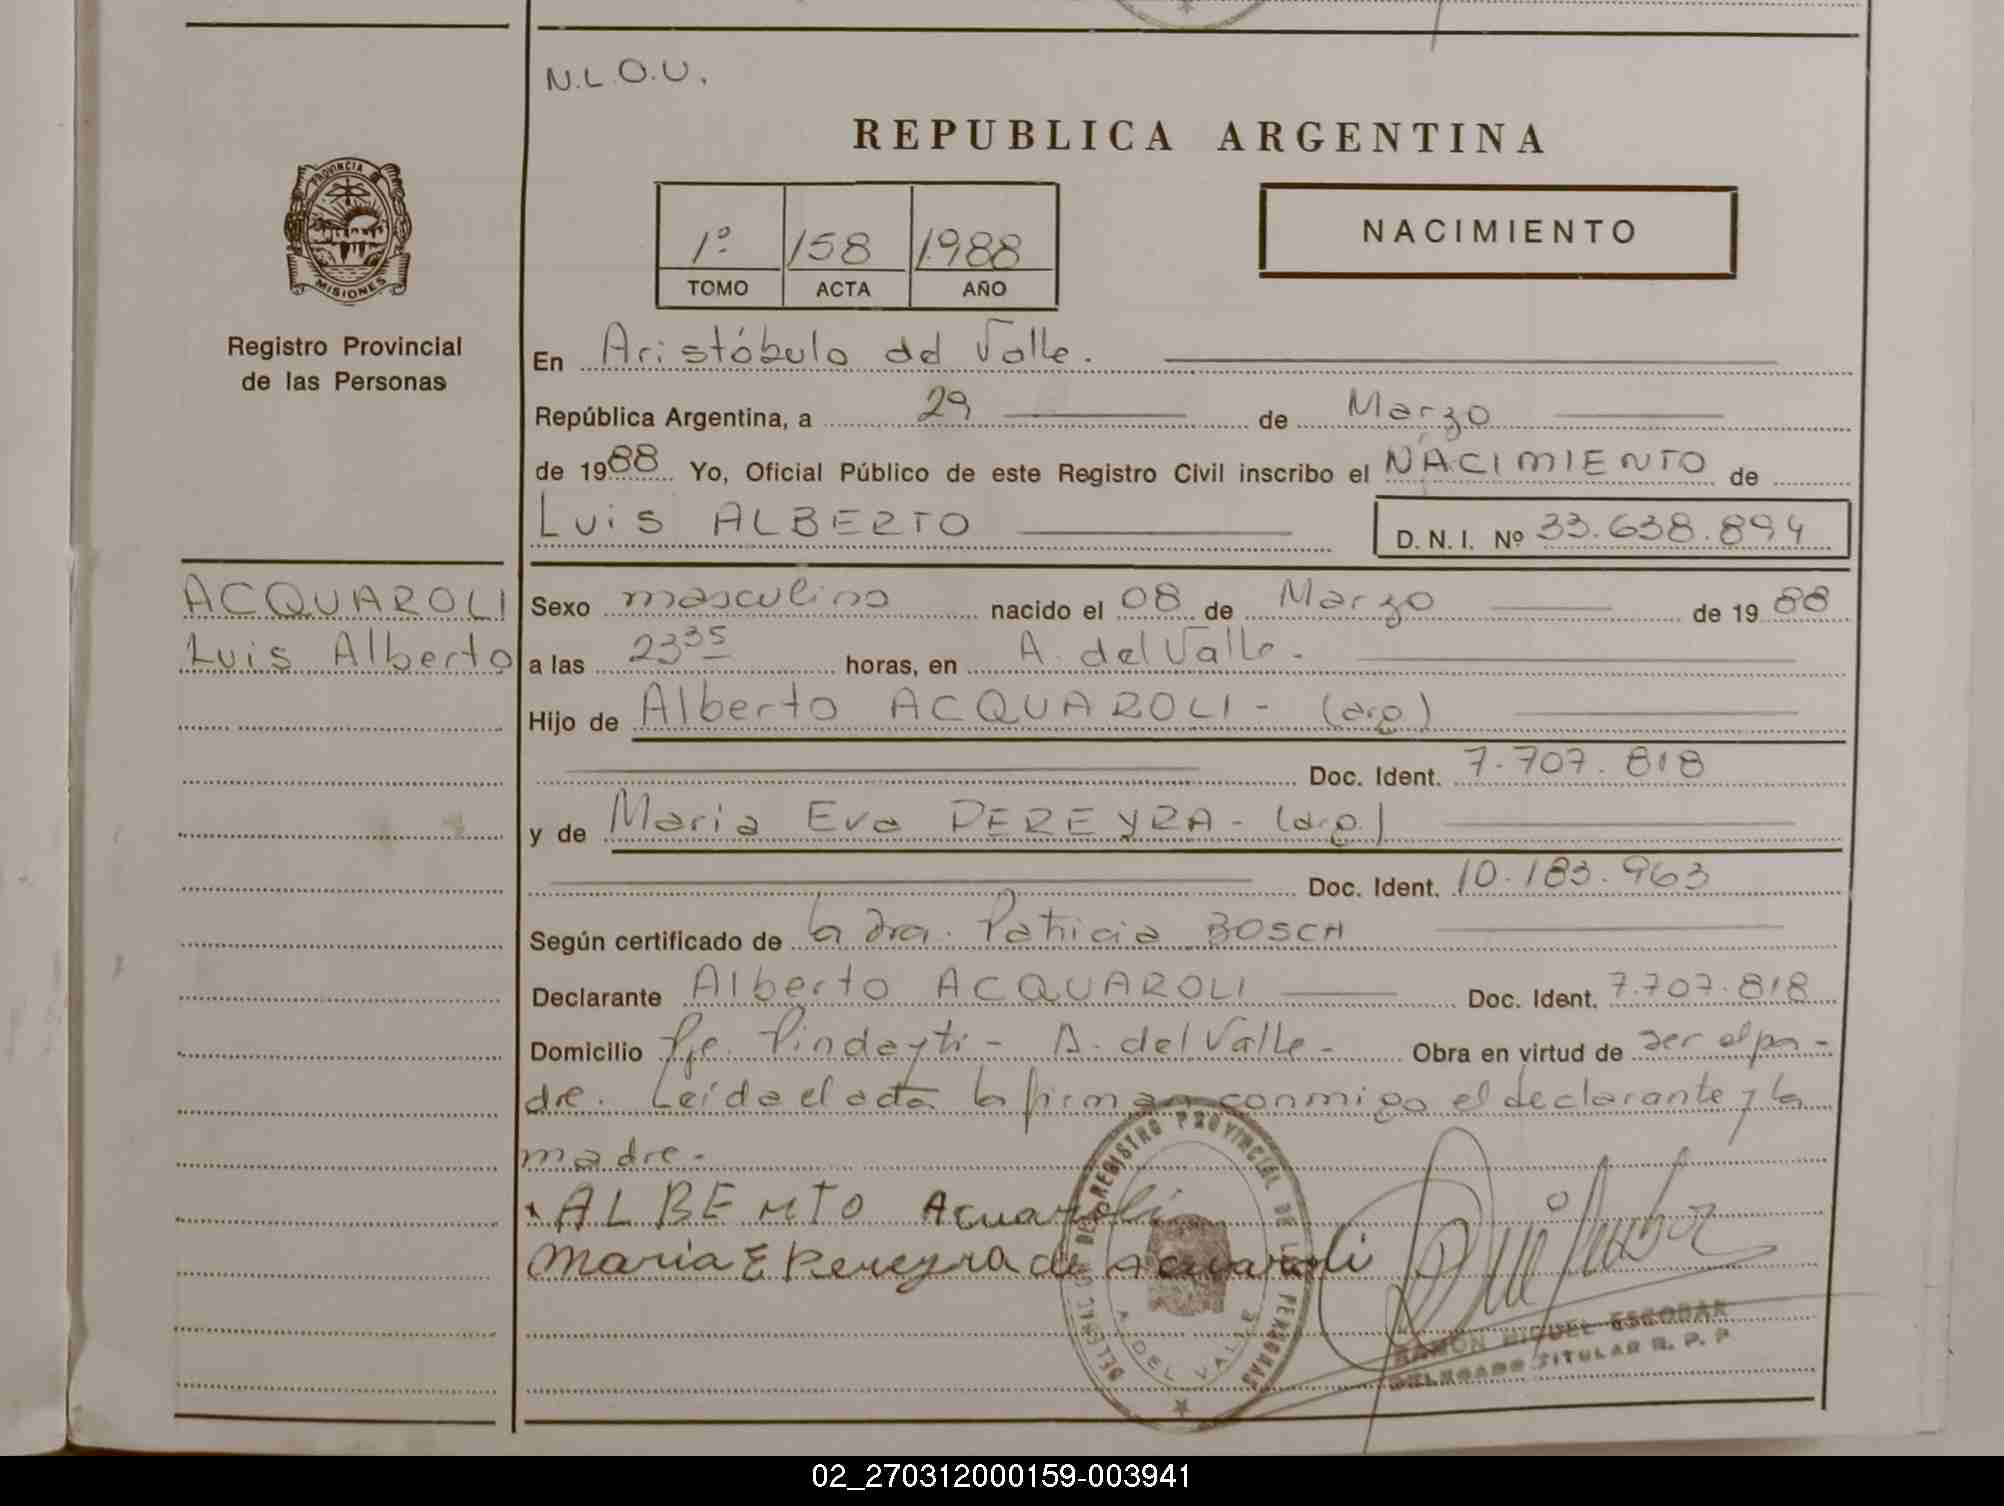 N.L.O.U.
REPUBLICA ARGENTINA
PROVINCIA
MISIONES
Registro Provincial
de las Personas
1º 158 1988
TOMO ACTA AÑO
NACIMIENTO
En Aristóbulo del Valle.
República Argentina, a 29 de Marzo
de 1988 Yo, Oficial Público de este Registro Civil inscribo el NACIMIENTO de
Luis ALBERTO D. N. I. Nº 33.638.894
ACQUAROLI
Luis Alberto
Sexo masculino nacido el 08 de Marzo de 19 88
a las 23 35 horas, en A. del Valle.
Hijo de Alberto ACQUAROLI - (arg)
Doc. Ident. 7.707.818
y de Maria Eva PEREYRA - (arg.)
Doc. Ident. 10.183.963
Según certificado de la Dra. Patricia BOSCH
Declarante Alberto ACQUAROLI Doc. Ident. 7.707.818
Domicilio Pje. Pindayti - A. del Valle - Obra en virtud de ser el pa-
dre. Leída el acta la firman conmigo el declarante y la
madre.-
ALBERTO Acuaroli
Maria E Pereyra de Acuaroli
REGISTRO PROVINCIAL DE LAS PERSONAS
A. DEL VALLE
RAMON MIGUEL ESCOBAR
DELEGADO TITULAR R. P. P.
02_270312000159-003941